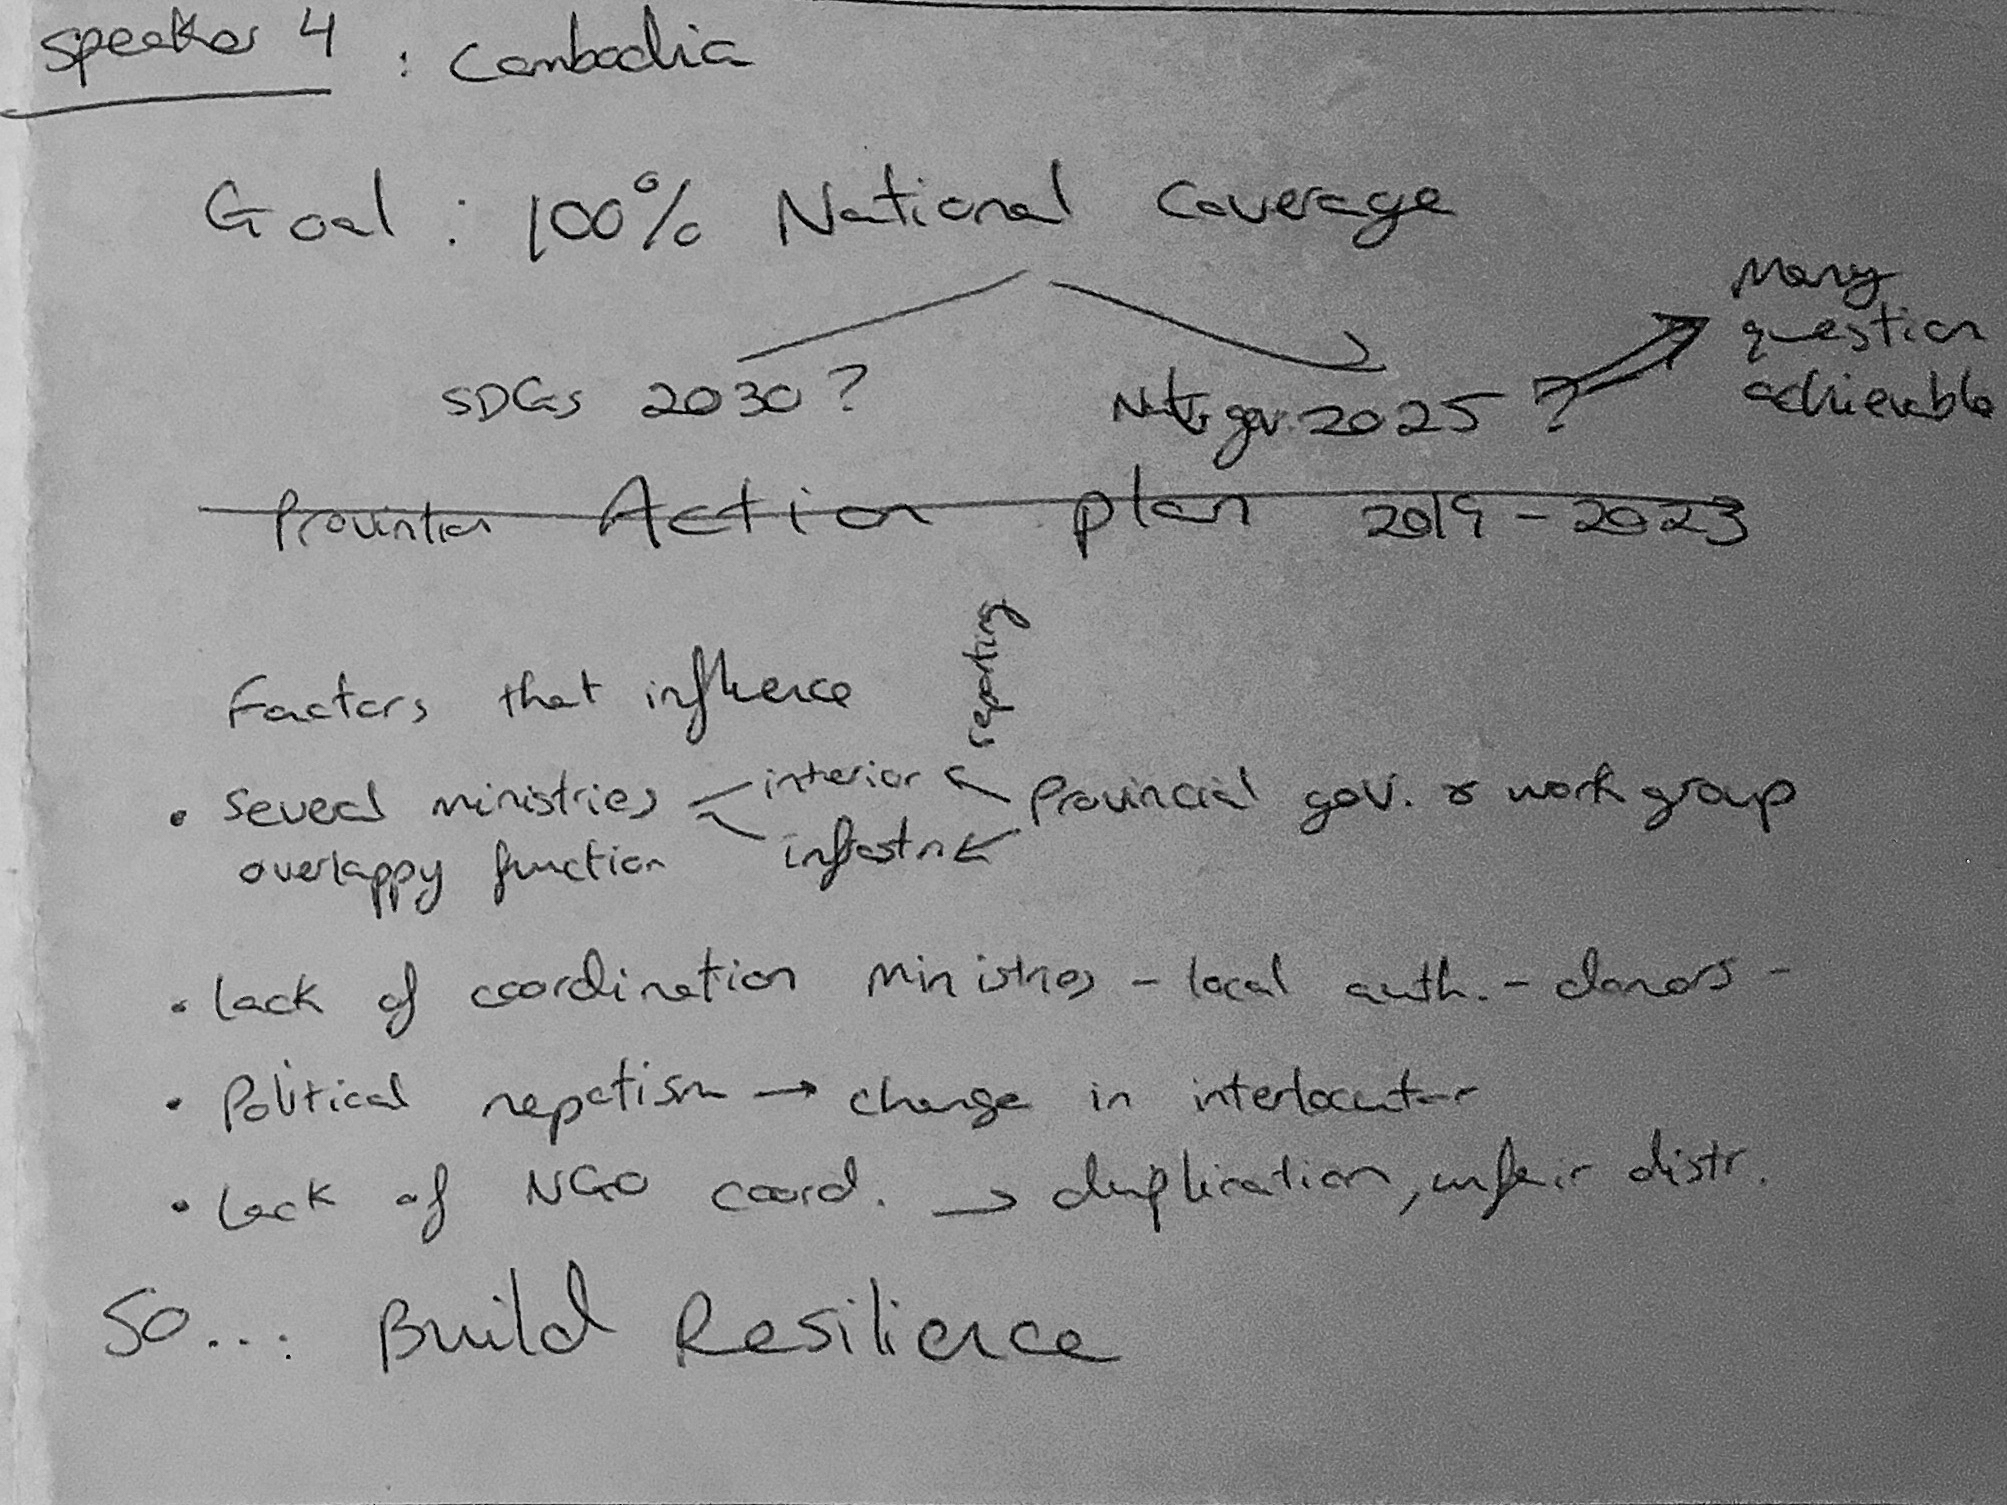 Speaker 4 : Cambodia
Goal : 100% National Coverage
SDGs 2030 ? Nat. gov. 2025 ?
Many
question
achievable
Action plan 2019 - 2023
Factors that influence
reporting
• Several ministries interior Provincial gov. & work group
overlappy function infrastr.
• Lack of coordination ministries - local auth. - donors -
• Political nepotism → change in interlocutor
• Lack of NGO coord. → duplication, unfair distr.
So...: Build Resilience